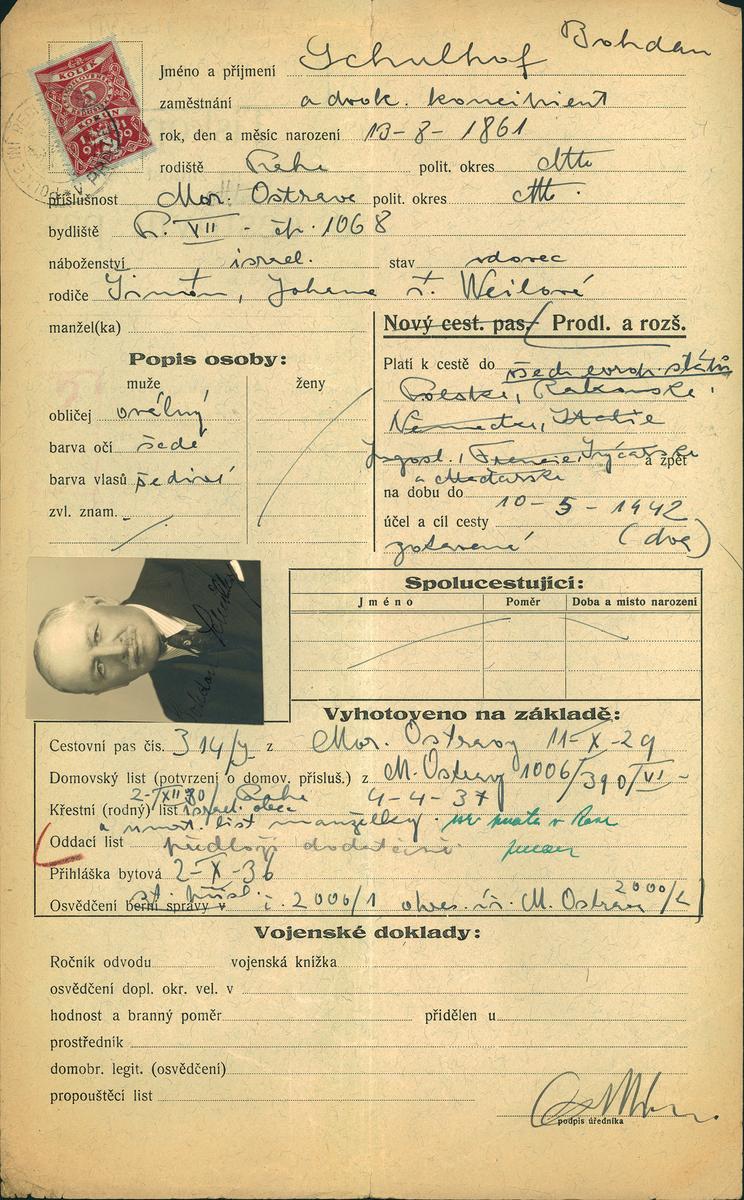 Schulhof Bohdan
Jméno a příjmení
KOLEK
5
KORUN
zaměstnání advok. koncipient
rok, den a měsíc narození 13-8-1861
rodiště Praha polit. okres
příslušnost Mor. Ostrava polit. okres
bydliště P. VII - čp. 1068
náboženství israel. stav vdovec
rodiče Šimon, Johana r. Weilová
manžel(ka)
Nový cest. pas. Prodl. a rozš.
Popis osoby:
muže ženy
obličej oválný
barva očí šedé
barva vlasů šediví
zvl. znam.
Platí k cestě do všech evrop. států
Polska, Rakouska,
Německa, Italie
Jugosl., Francie, Švýcarska a zpět
a Maďarska
na dobu do 10-5-1942
účel a cíl cesty (dva)
zotavená
Spolucestující:
Jméno Poměr Doba a místo narození
Vyhotoveno na základě:
Cestovní pas čís. 314/ z Mor. Ostravy 11-X-29
Domovský list (potvrzení o domov. přísluš.) z M. Ostravy 1006/390/VI-
2-XII 80/ Praha 4-4-37
Křestní (rodný) list israel. obec
a úmrt. list manželky.
Oddací list předloží dodatečně
Přihláška bytová 2-X-36
st. přísl.
Osvědčení berní správy v č. 2000/1 okres. úř. M. Ostrava 2000/2
Vojenské doklady:
Ročník odvodu vojenská knížka
osvědčení dopl. okr. vel. v
hodnost a branný poměr přidělen u
prostředník
domobr. legit. (osvědčení)
propouštěcí list
podpis úředníka